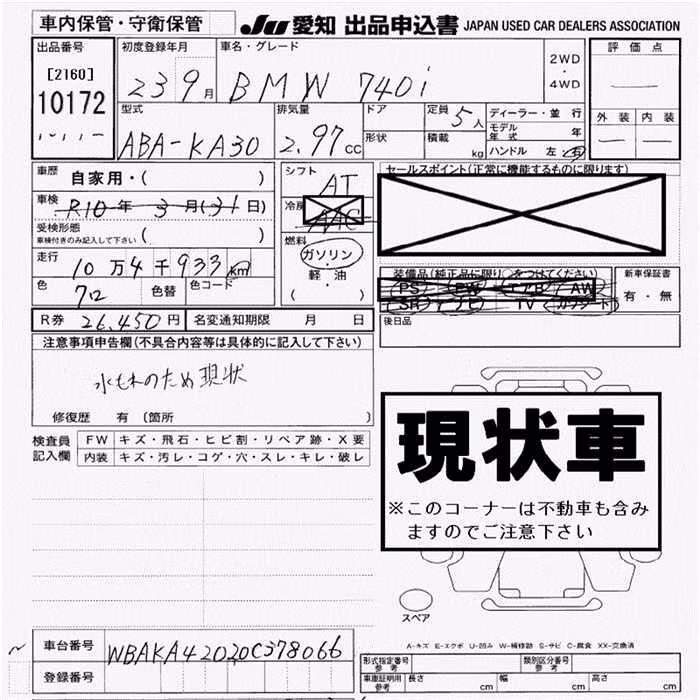 車内保管・守衛保管
JU 愛知 出品申込書 JAPAN USED CAR DEALERS ASSOCIATION
出品番号 初度登録年月 車名・グレード 評価点
[2160]
10172
23 9月 BMW 740i 2WD・4WD
外装 内装
型式 排気量 ドア 定員 5人 ディーラー・並行
ABA-KA30 2.97CC 形状 積載 kg モデル年式 年
ハンドル 左・右
車歴 自家用・( )
シフト AT
セールスポイント(正常に機能するものに限ります)
車検 R10年3月(31日)
冷房 AAC
受検形態 ( )
車検付きのみ記入して下さい
燃料 ガソリン・軽・油
( )
走行 10万4千933km
装備品(純正品に限り○をつけてください) 新車保証書
PS PW エアB AW 有・無
SR ナビ TV カワシート
色 色替 色コード
R券 26,450円 名変通知期限 月 日
後日品
注意事項申告欄(不具合内容等は具体的に記入して下さい)
水もれのため現状
修復歴 有 〔箇所
現状車
※このコーナーは不動車も含み
ますのでご注意下さい
検査員記入欄 FW キズ・飛石・ヒビ割・リペア跡・X要
内装 キズ・汚レ・コゲ・穴・スレ・キレ・破レ
スペア
A-キズ E-エクボ U-凹み W-補修跡 S-サビ C-腐食 XX-交換済
車台番号 WBAKA42020C378066
登録番号
形式指定番号参考 類別区分番号参考
車庫証明用参考 長さ cm 幅 cm 高さ cm